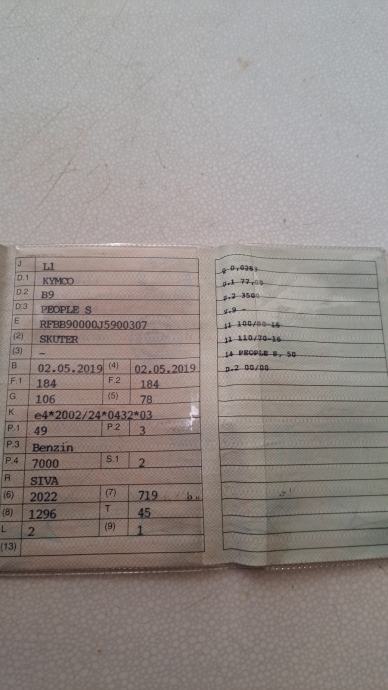 J L1
D.1 KYMCO
D.2 B9
D.3 PEOPLE S
E RFBB90000J5900307
(2) SKUTER
(3) -
B 02.05.2019 (4) 02.05.2019
F.1 184 F.2 184
G 106 (5) 78
K e4*2002/24*0432*03
P.1 49 P.2 3
P.3 Benzin
P.4 7000 S.1 2
R SIVA
(6) 2022 (7) 719
(8) 1296 T 45
L 2 (9) 1
(13)
U.2 3500
V.9 -
11 100/80-16
11 110/70-16
14 PEOPLE S, 50
D.2 00/00